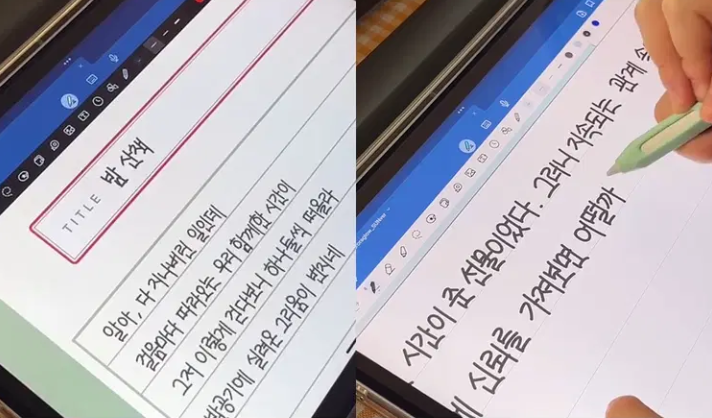 TITLE 밤 산책
알아, 다 지나버린 일인데
걸음마다 따라오는 우리 함께한 시간이
그저 이렇게 걷다보니 하나둘씩 떠올라
밤공기에 실려온 그리움이 번지네
시간이 준 선물이었다. 그러니 지속되는 관계 속
신뢰를 가져보면 어떨까